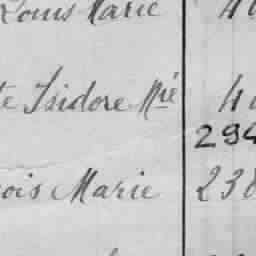 Louis Marie 4
te Isidore Mié 4
294
ois Marie 238